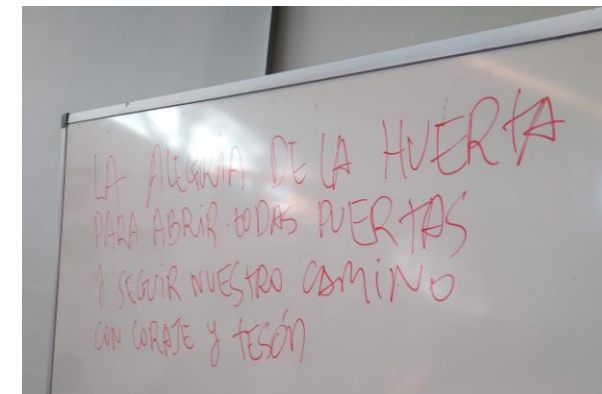 LA ALEGRIA DE LA HUERTA
PARA ABRIR TODAS PUERTAS
Y SEGUIR NUESTRO CAMINO
CON CORAJE Y TESÓN